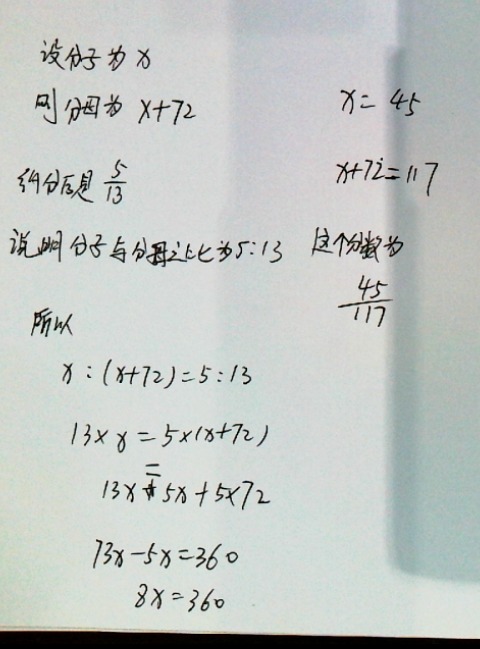 设分子为x
则分母为 x+72
约分后是 5/13
说明分子与分母之比为5:13
所以
x:(x+72)=5:13
13×x=5×(x+72)
13x=5x+5×72
13x-5x=360
8x=360
x=45
x+72=117
这个分数为
45/117